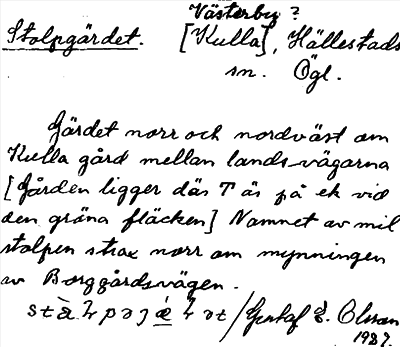 Västerby?
Stolpgärdet. [Kulla], Hällestads
sn. Ögl.
Gärdet norr och nordväst om
Kulla gård mellan lands-vägarna
[Gården ligger där T är på ek vid
den gröna fläcken] Namnet av mil
stolpen strax norr om mynningen
av Borggårdsvägen.
/Gustaf E. Olsson